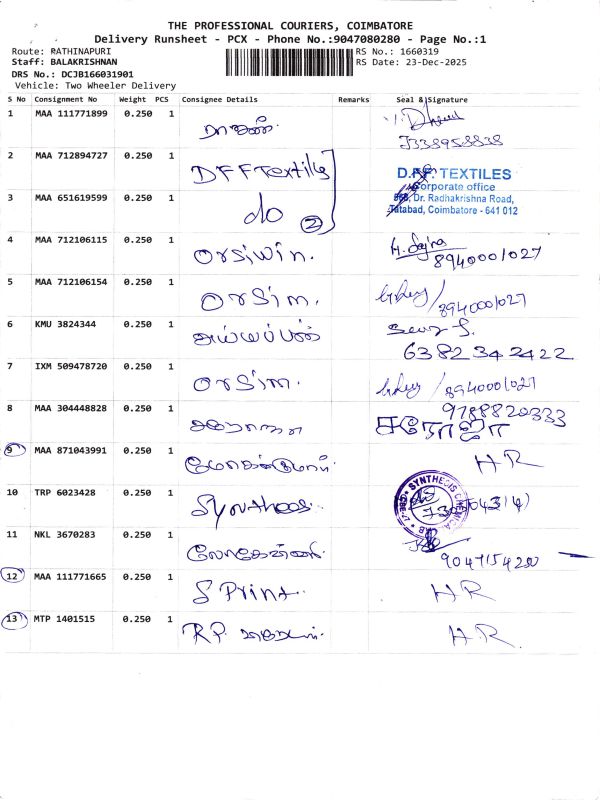 THE PROFESSIONAL COURIERS, COIMBATORE
Delivery Runsheet - PCX - Phone No.:9047080280 - Page No.:1
Route: RATHINAPURI RS No.: 1660319
Staff: BALAKRISHNAN RS Date: 23-Dec-2025
DRS No.: DCJB166031901
Vehicle: Two Wheeler Delivery
S No Consignment No Weight PCS Consignee Details Remarks Seal & Signature
1 MAA 111771899 0.250 1
2 MAA 712894727 0.250 1 DFF Textiles D.F.F. TEXTILES
Corporate office
3 MAA 651619599 0.250 1 do 2 Dr. Radhakrishna Road,
Tatabad, Coimbatore - 641 012
4 MAA 712106115 0.250 1 Orsiwin. 8940001027
5 MAA 712106154 0.250 1 Orsim. 8940001027
6 KMU 3824344 0.250 1 அய்யப்பன் 6382342422
7 IXM 509478720 0.250 1 Orsim. 8940001027
8 MAA 304448828 0.250 1 9788820333
சரோஜா
9 MAA 871043991 0.250 1 HR
10 TRP 6023428 0.250 1 SYNTHESIS CHEMICAL
11 NKL 3670283 0.250 1 9047154200
12 MAA 111771665 0.250 1 S Print. HR
13 MTP 1401515 0.250 1 R.P. HR